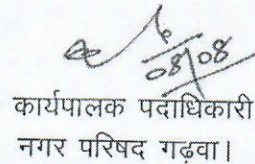 08/08
कार्यपालक पदाधिकारी
नगर परिषद गढ़वा।